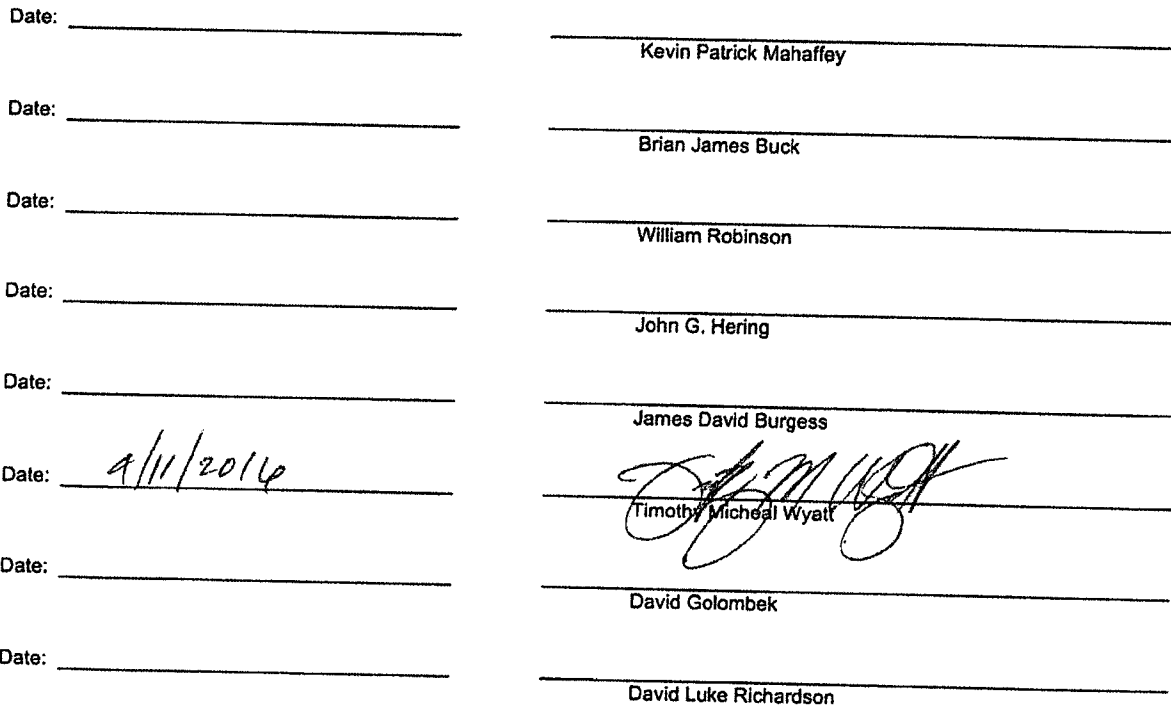 Date:
Kevin Patrick Mahaffey
Date:
Brian James Buck
Date:
William Robinson
Date:
John G. Hering
Date:
James David Burgess
Date: 4/11/2016
Timothy Micheal Wyatt
Date:
David Golombek
Date:
David Luke Richardson